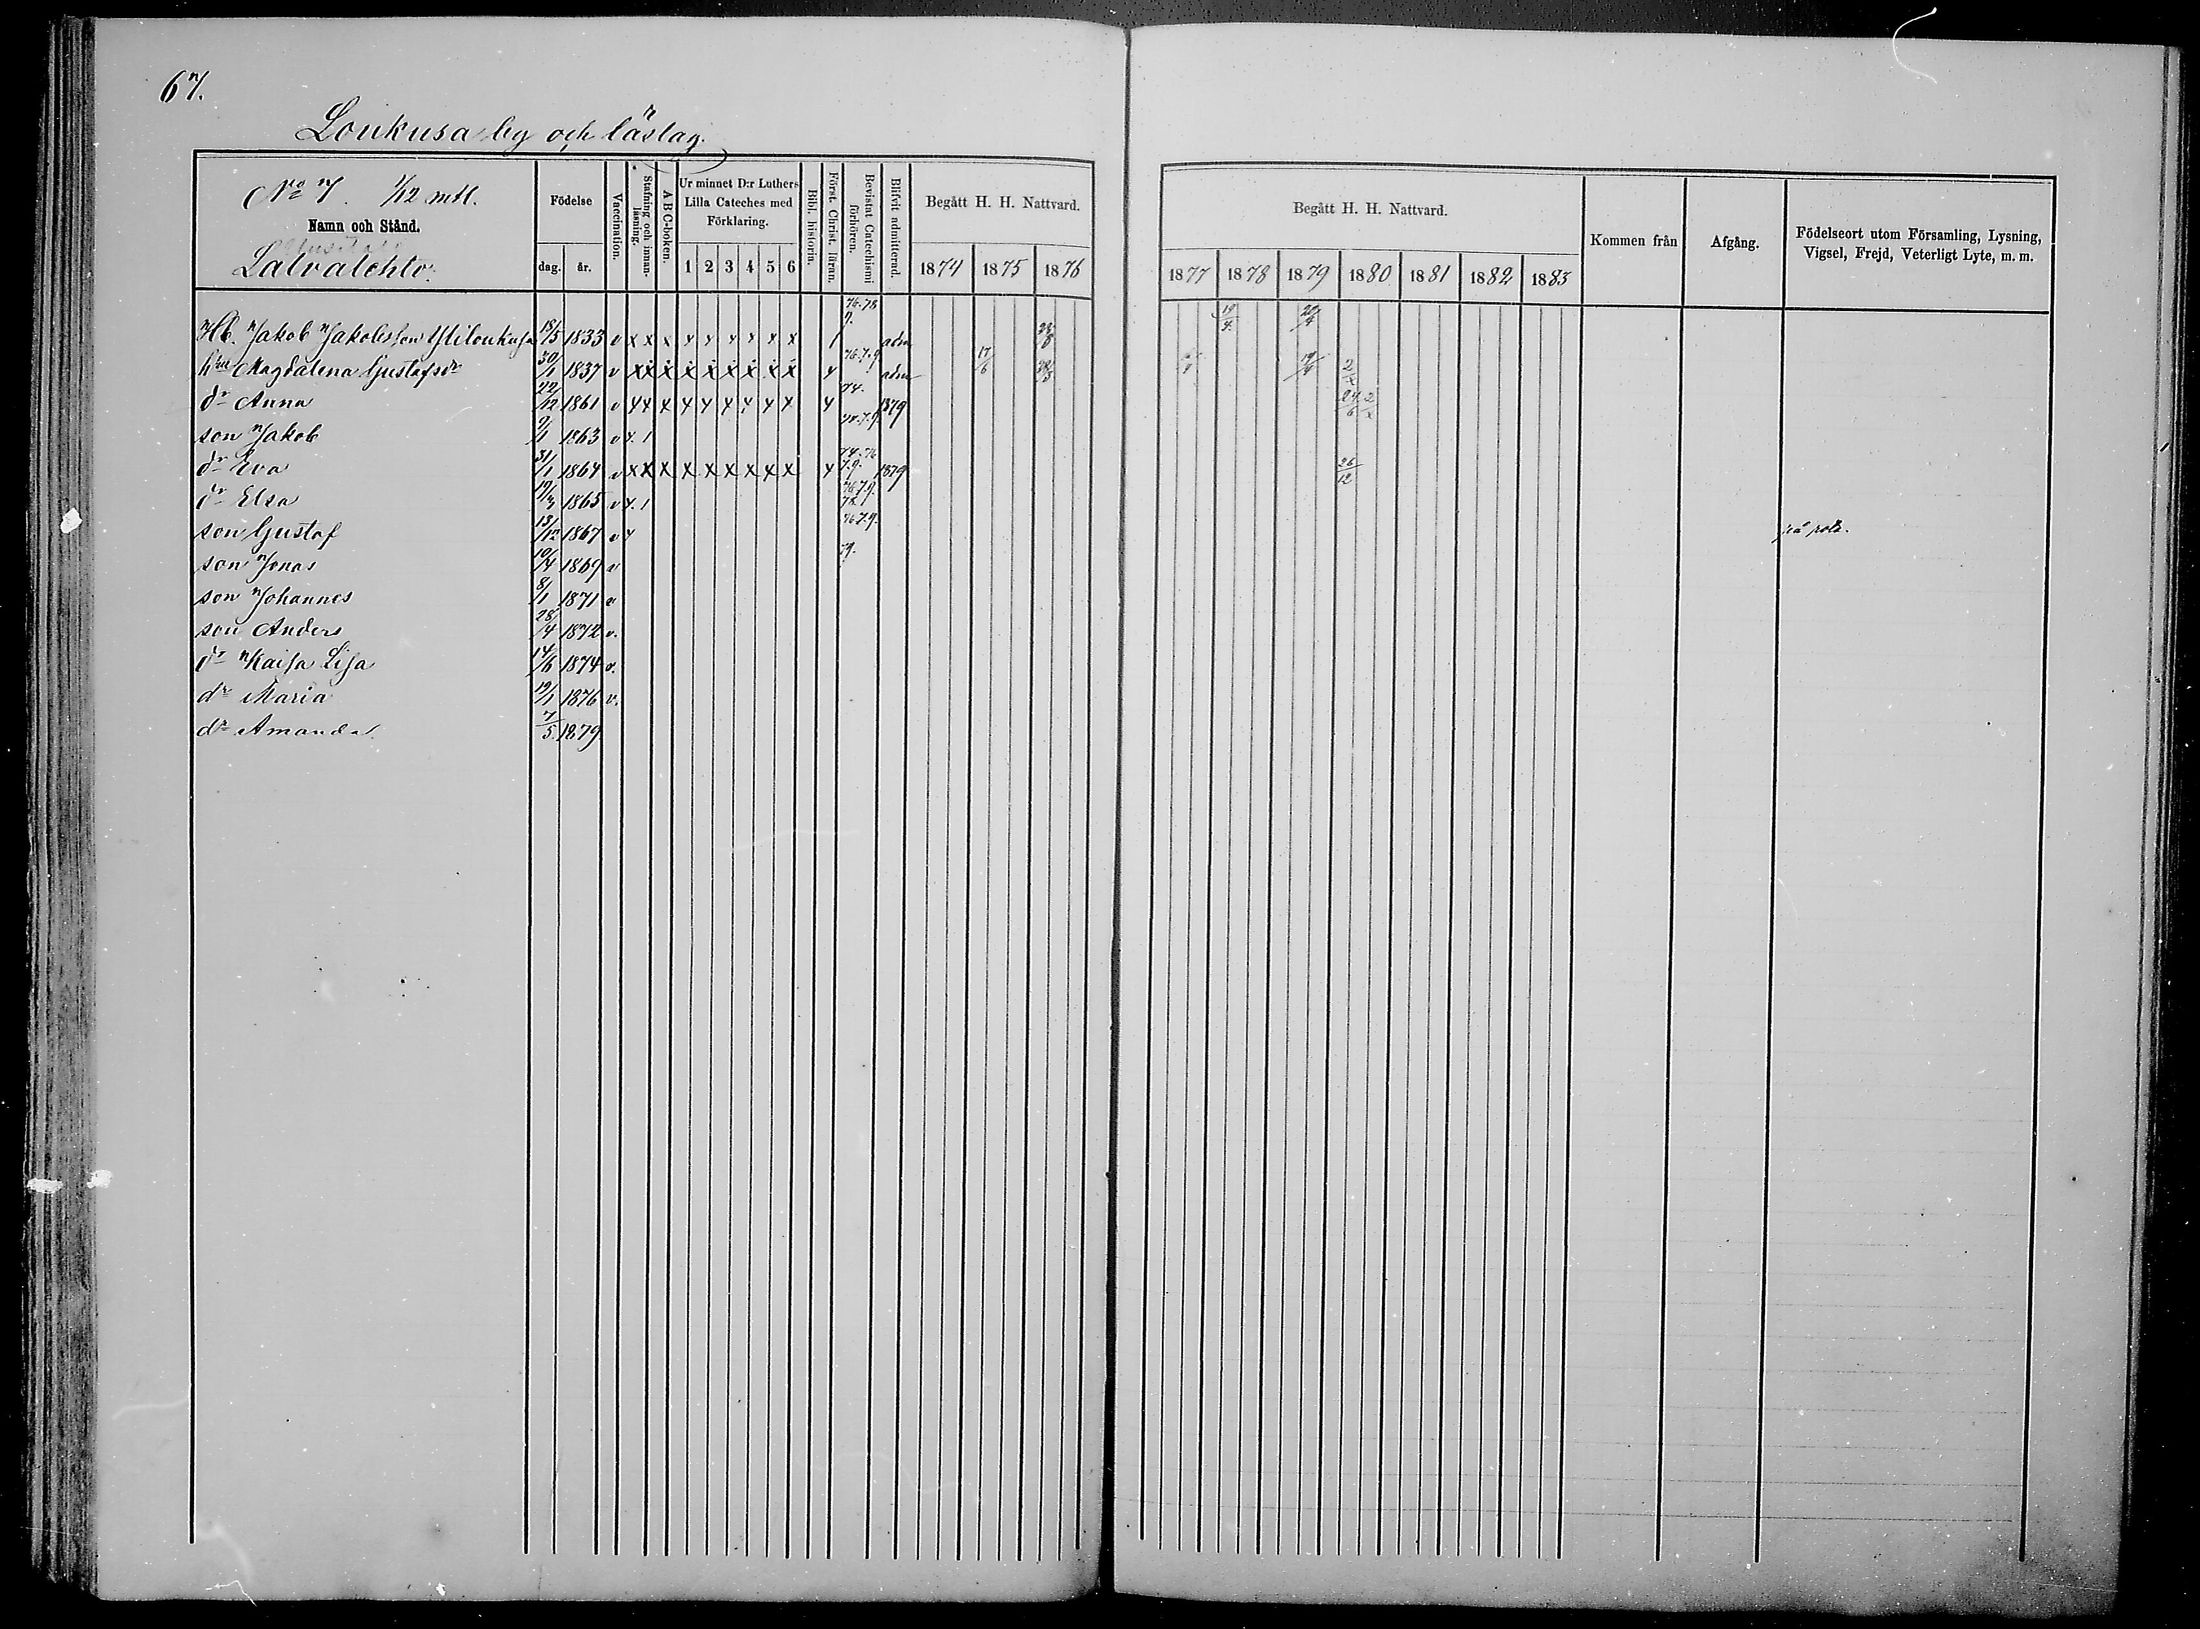 67.
Loukusa by och läslag.
No 7. 1/12 mtl.
Namn och Stånd.
Födelse
dag. år.
Vaccination.
Stafning och innanläsning.
A B C-boken.
Ur minnet D:r Luthers Lilla Cateches med Förklaring.
1 2 3 4 5 6
Bibl. historia.
Först. Christ. läran.
Bevistat Catechismi förhören.
Blifvit admitterad.
Begått H. H. Nattvard.
1874 1875 1876
Begått H. H. Nattvard.
1877 1878 1879 1880 1881 1882 1883
Kommen från
Afgång.
Födelseort utom Församling, Lysning, Vigsel, Frejd, Veterligt Lyte, m. m.
Latvalehto.
Hb. Jakob Jakobsson Yliloukusa 18/5 1833 v x x x x x x x x x 1 adm
hu Magdalena Gustafsdr 30/1 1837 v x x x x x x x x x 4 76.7.9 adm 17/6
dr Anna 22/12 1861 v 4 4 x 4 4 4 4 4 4 4 74. 1879
son Jakob 9/1 1863 v 4. 1
dr Eva 31/1 1864 v x x x x x x x x x 4 74.76 7.9. 1879 26/12
dr Elsa 1865 v 4. 1
son Gustaf 13/12 1867 v 4 76 7.9. på rote.
son Jonas 10/4 1869 v 79.
son Johannes 8/1 1871 v
son Anders 28/4 1872 v.
dr Kaisa Lisa 14/6 1874 v.
dr Maria 19/1 1876 v.
dr Amanda 7/5. 1879